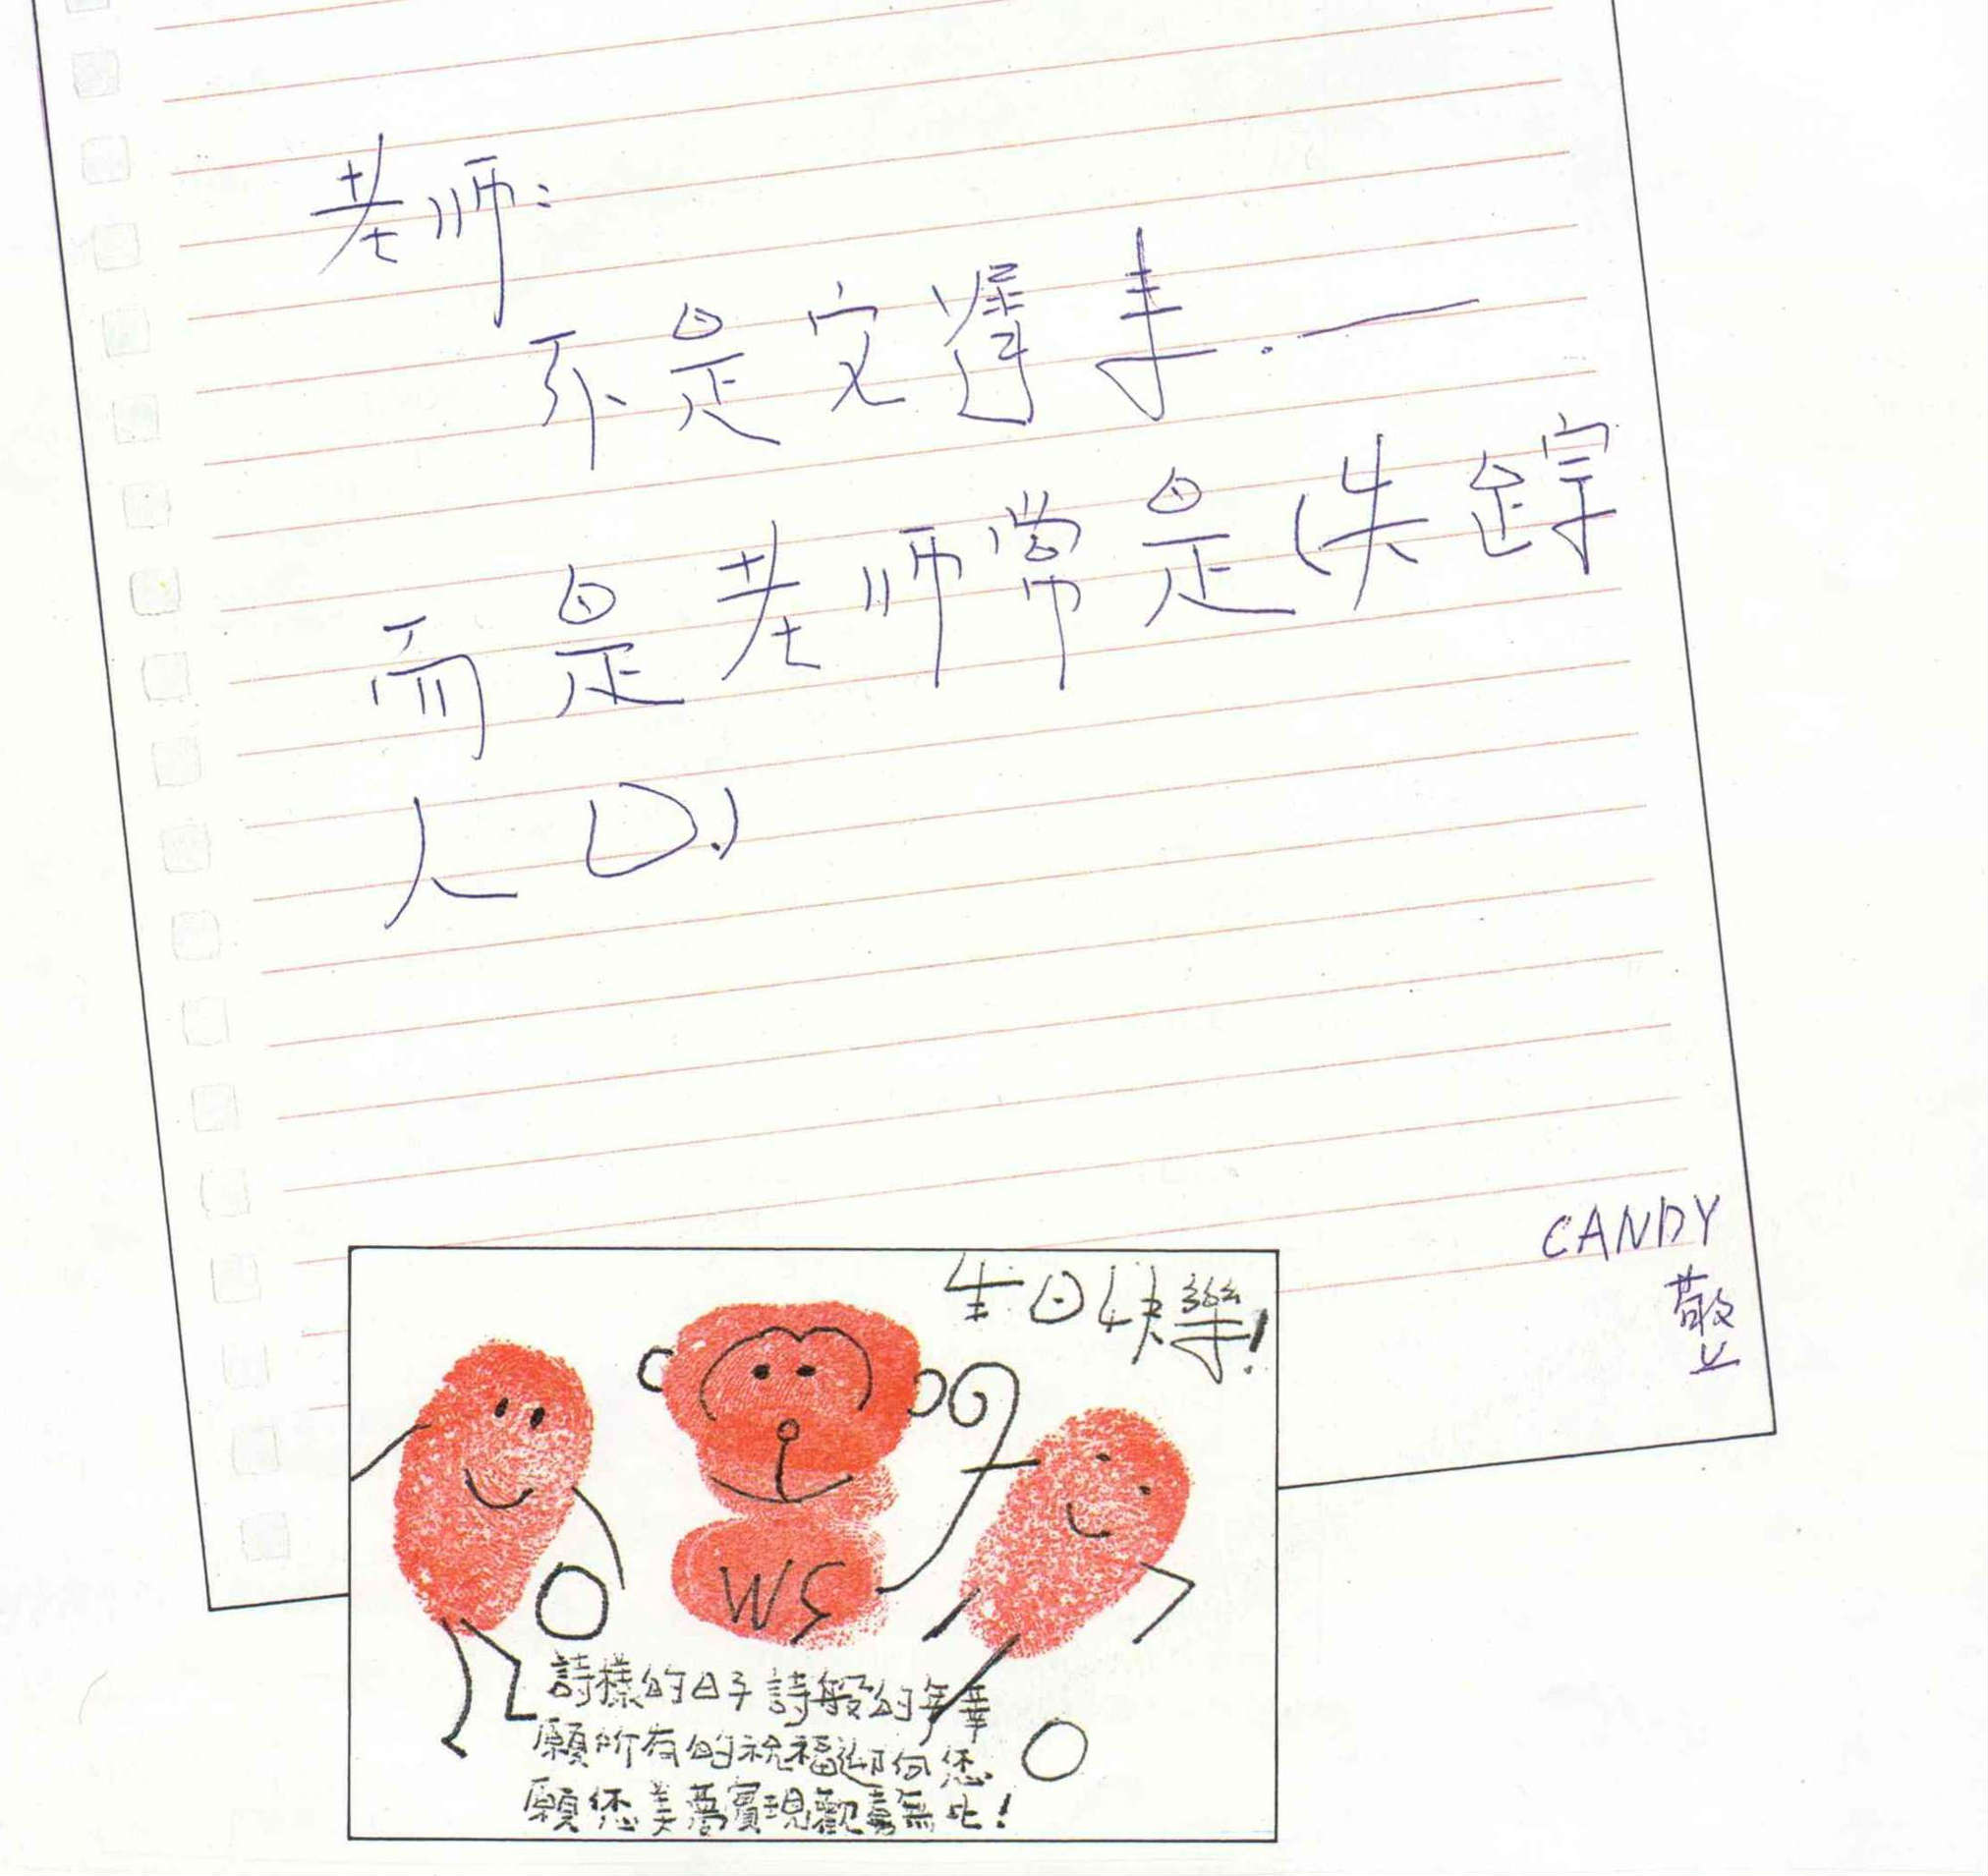 老师：
不是交遲
而是老师常是(失踪
人口.)
CANDY
敬上
生日快樂！
WS
詩樣的日子詩般的年華
願所有的祝福迎向您
願您美夢實現觀喜無比！